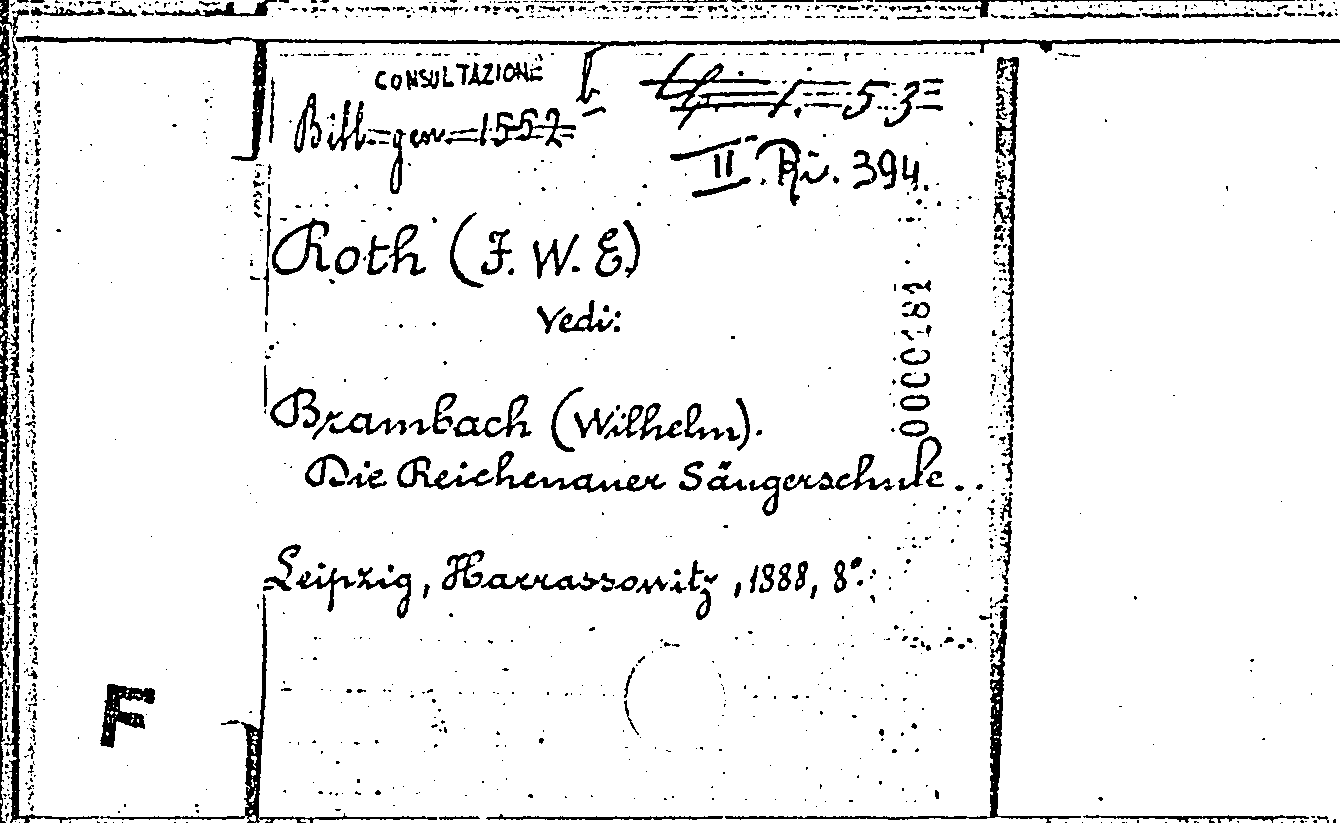 CONSULTAZIONE b
Bibl. gen. 1552
1. 53
II. Ri. 394
Roth (F. W. E)
Vedi:
0000181
Brambach (Wilhelm).
Die Reichenauer Sängerschule..
Leipzig, Harrassowitz, 1888, 8°.
F